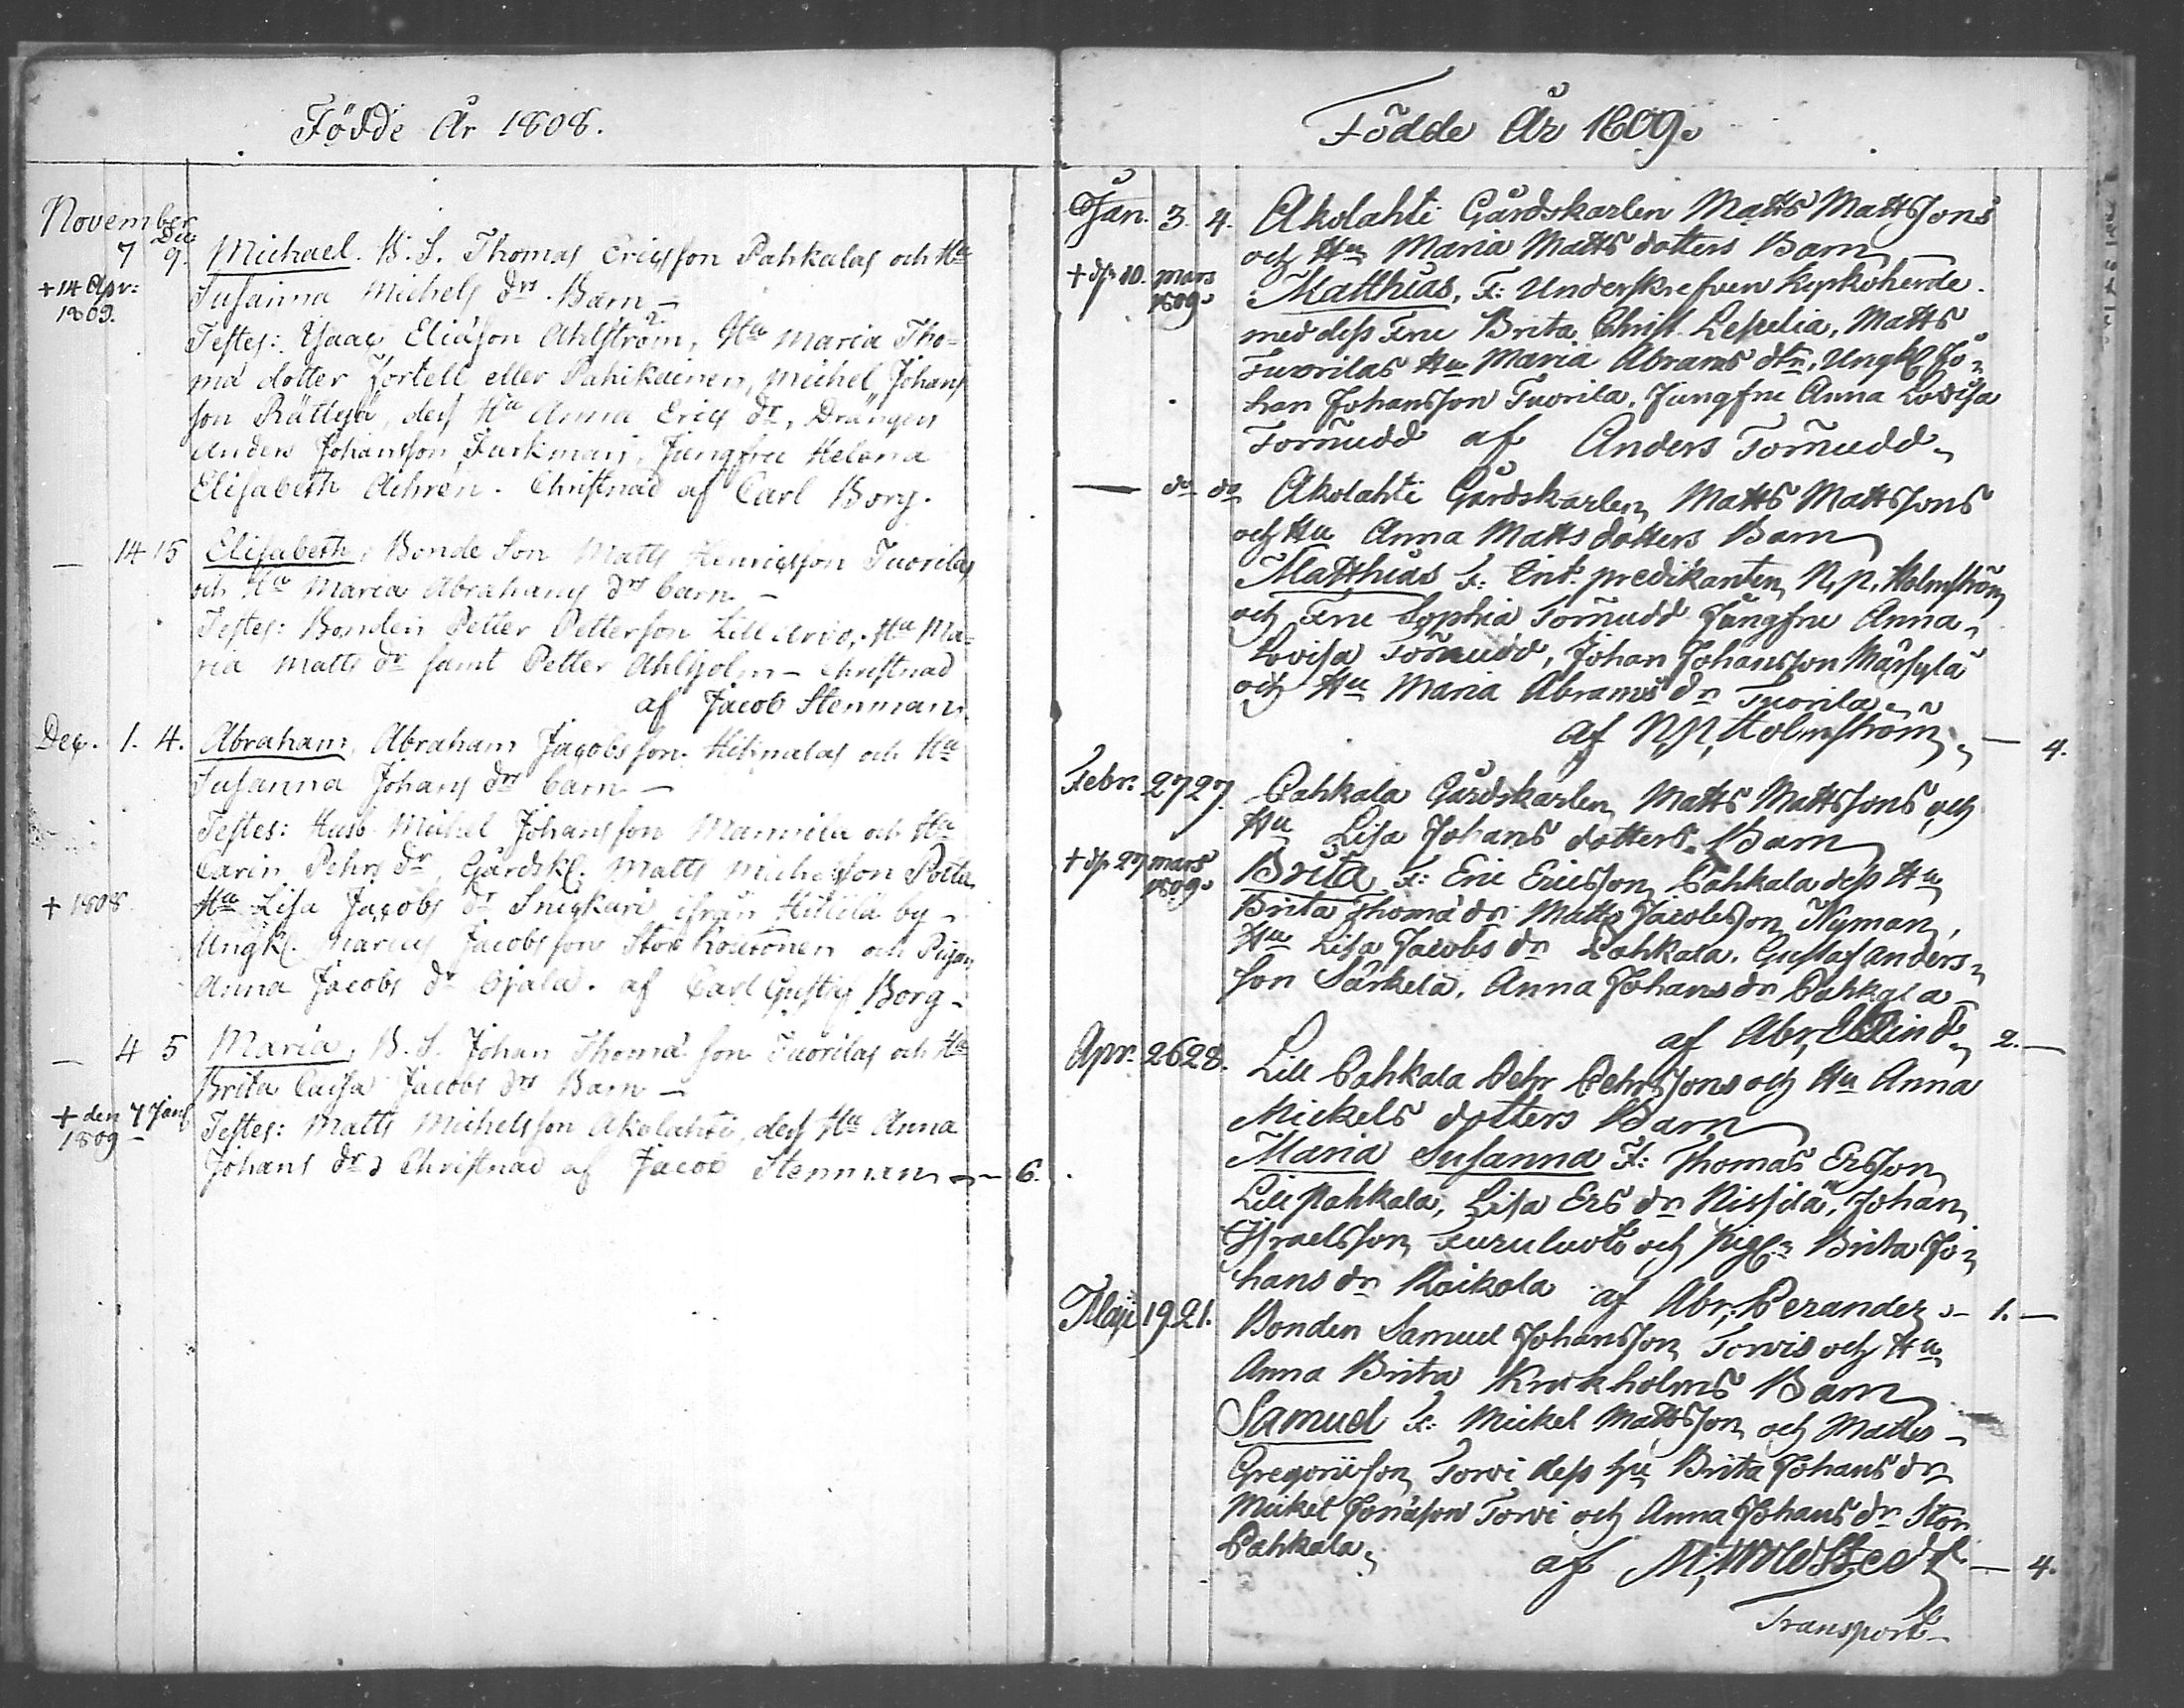 Födde År 1808.
November
7 Dec: 9. Michael. B. S. Thomas Ericsson Pahkalas och Hu
+ 14 Apr: Susanna Michels drs Barn –
1809.
Testes: Isaac Eliasson Ahlström, Hu Maria Tho=
mä dotter Fortell eller Pahikainen, Michel Johans
son Rättyä, dess Hu Anna Erics dr, Drängen
Anders Johansson Junkman, Jungfru Helena
Elisabeth Achren. Christnad af Carl Borg.
– 14 15 Elisabeth, Bonde Son Matts Henricsson Tuorilas
och Hu Maria Abrahams drs barn –
Testes: Bonden Petter Petterson Lill Arvo, Hu Ma=
ria Matts dr samt Petter Ahlholm – Christnad
af Jacob Stenman.
Dec. 1. 4. Abraham, Abraham Jacobsson och Hu
Susanna Johans drs barn –
Testes: Husb. Michel Johansson Mannila och Hu
Carin Pehrs dr, Gårdskl. Matts Michelsson
+ 1808. Hu Lisa Jacobs dr Snickari ifrån by –
Ungkl. Jacobsson Stor Koutonen och Pigan
Anna Jacobs dr Ojala. af Carl Gustaf Borg –
– 4 5 Maria, B. S. Johan Thomä son Tuorilas och Hu
Brita Caisa Jacobs drs Barn –
+ den 7 Jan
1809 – Testes: Matts Michelsson Akolahti, dess Hu Anna
Johans dr, Christnad af Jacob Stenman – 6.
Födde År 1809.
Jan. 3. 4. Akolahti Gårdskarlen Matts Mattssons
och Hu Maria Matts dotters Barn –
+ d. 10. mars
1809. Matthias, F: Underskrefven Kyrkoherde
med dess Fru Brita Christ. Lepelia, Matts
Tuorilas Hu Maria Abrams dtr, Ungkl Jo=
han Johansson Tuorila, Jungfru Anna Lovisa
Tornudd af Anders Tornudd
– do do Akolahti Gårdskarlen Matts Mattssons
och Hu Anna Matts dotters Barn
Matthias F: Ent. predikanten N. N. Holmström
och Fru Sophia Tornudd Jungfru Anna
Lovisa Tornudd, Johan Johansson Märsylä
och Hu Maria Abrams dr Tuorila
af N. N. Holmström – 4.
Febr. 27 27. Pahkala Gårdskarlen Matts Mattssons och
Hu Lisa Johans dotters Barn
+ d. 27 mars
1809. Brita F: Eric Ericsson Pahkala dess Hu
Brita Thomä dr Matts Jacobsson Nyman,
Hu Lisa Jacobs dr Pahkala. Gustaf Anders=
son Särkelä, Anna Johans dr Pahkala –
af Abr. Elfvind 2. –
Apr. 26 28. Lill Pahkala Pehr Pehrssons och Hu Anna
Mickels dotters Barn
Maria Susanna F: Thomas Ersson
Lill pahkala, Lisa Ers dr Nissilä, Johan
Israelsson Furuluoto och Pig. Brita Jo=
hans dr Raikola af Abr. Perander – 1. –
Maji 19 21. Bonden Samuel Johansson Torvis och Hu
Anna Brita Krukholms Barn
Samuel F: Mickel Mattsson och Matts –
Gregoriison Torvi dess Hu Brita Johans dr
Mickel Jonäson Torvi och Anna Johans dr Stor
Pahkala, af M. Woldstedt – 4.
Transport –